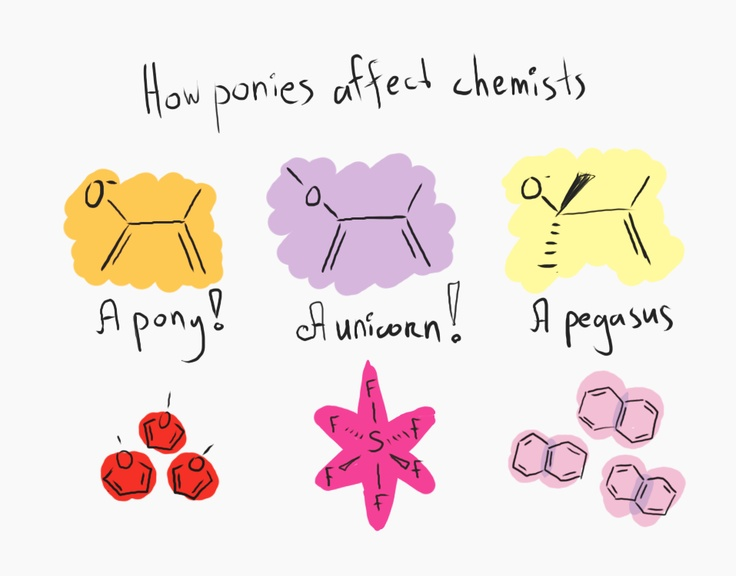 How ponies affect chemists
O⁻ O O⁻
A pony! A unicorn! A pegasus
F
F F
S
F F
F